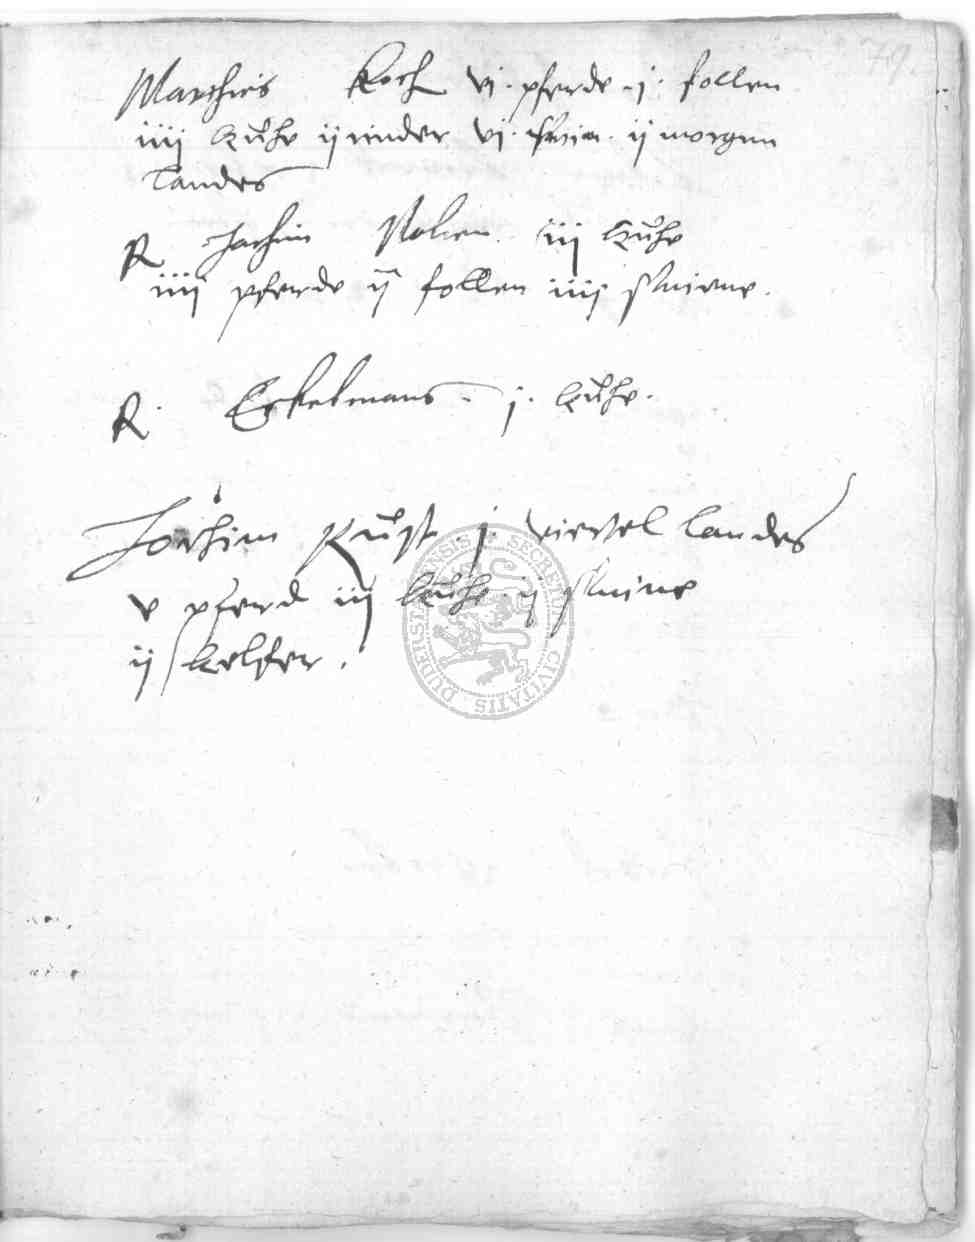 79.
Matthies Koch vj. pferde .j. follen
iiij kuhe ij rinder vj. swin ij morgen
landes
R Jochim Nolten iij kuhe
iiij pferde ij follen iiij swine.
R. Eckelmans. j. kuhe.
Jochim Rust .j. viertel landes
v pferd iij kuhe ij swine
ij kelfer.
SECRETUM CIVITATIS DUDERSTADENSIS